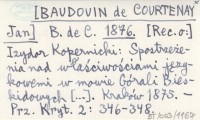 [BAUDOUIN de COURTENAY
Jan] B. de C. 1876. [Rec. o:]
Izydor Kopernicki: Spostrzeże-
nia nad właściwościami języ-
kowemi w mowie Górali Bies-
kidowych [...]. Kraków 1875. -
Prz. Kryt. 2: 346-348.
BT 1003/1967